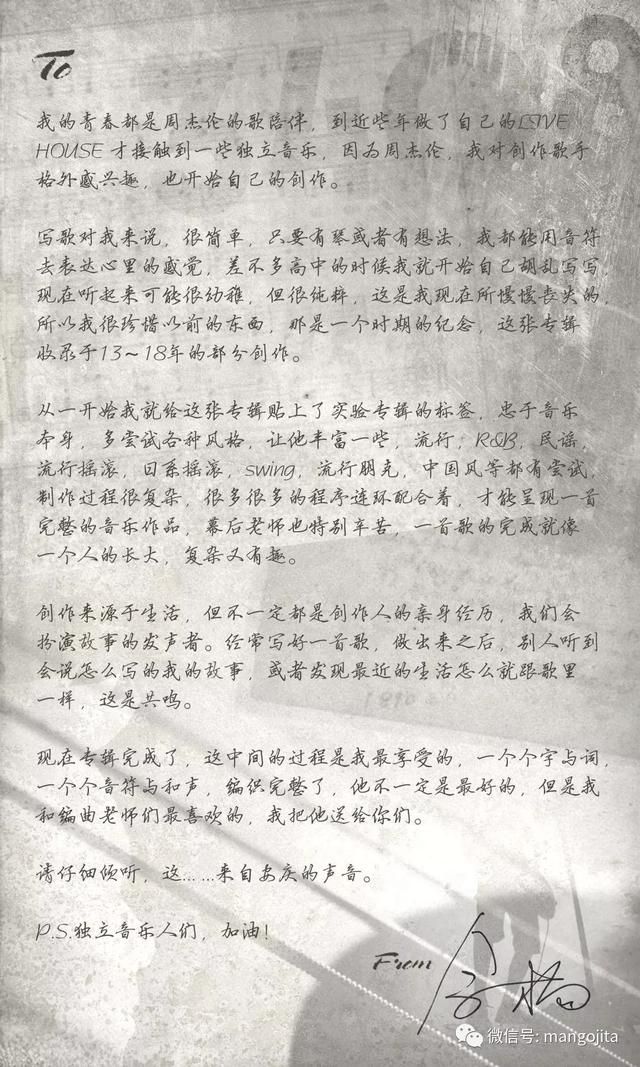 To
我的青春都是周杰伦的歌陪伴，到近些年做了自己的LIVE
HOUSE 才接触到一些独立音乐，因为周杰伦，我对创作歌手
格外感兴趣，也开始自己的创作。
写歌对我来说，很简单，只要有琴或者有想法，我都能用音符
去表达心里的感觉，差不多高中的时候我就开始自己胡乱写写，
现在听起来可能很幼稚，但很纯粹，这是我现在所慢慢丧失的，
所以我很珍惜以前的东西，那是一个时期的纪念，这张专辑
收录于13～18年的部分创作。
从一开始我就给这张专辑贴上了实验专辑的标签，忠于音乐
本身，多尝试各种风格，让他丰富一些，流行，R&B，民谣，
流行摇滚，日系摇滚，swing，流行朋克，中国风等都有尝试，
制作过程很复杂，很多很多的程序连环配合着，才能呈现一首
完整的音乐作品，幕后老师也特别辛苦，一首歌的完成就像
一个人的长大，复杂又有趣。
创作来源于生活，但不一定都是创作人的亲身经历，我们会
扮演故事的发声者。经常写好一首歌，做出来之后，别人听到
会说怎么写的我的故事，或者发现最近的生活怎么就跟歌里
一样，这是共鸣。
现在专辑完成了，这中间的过程是我最享受的，一个个字与词，
一个个音符与和声，编织完整了，他不一定是最好的，但是我
和编曲老师们最喜欢的，我把他送给你们。
请仔细倾听，这……来自安庆的声音。
P.S.独立音乐人们，加油！
From
微信号: mangojita